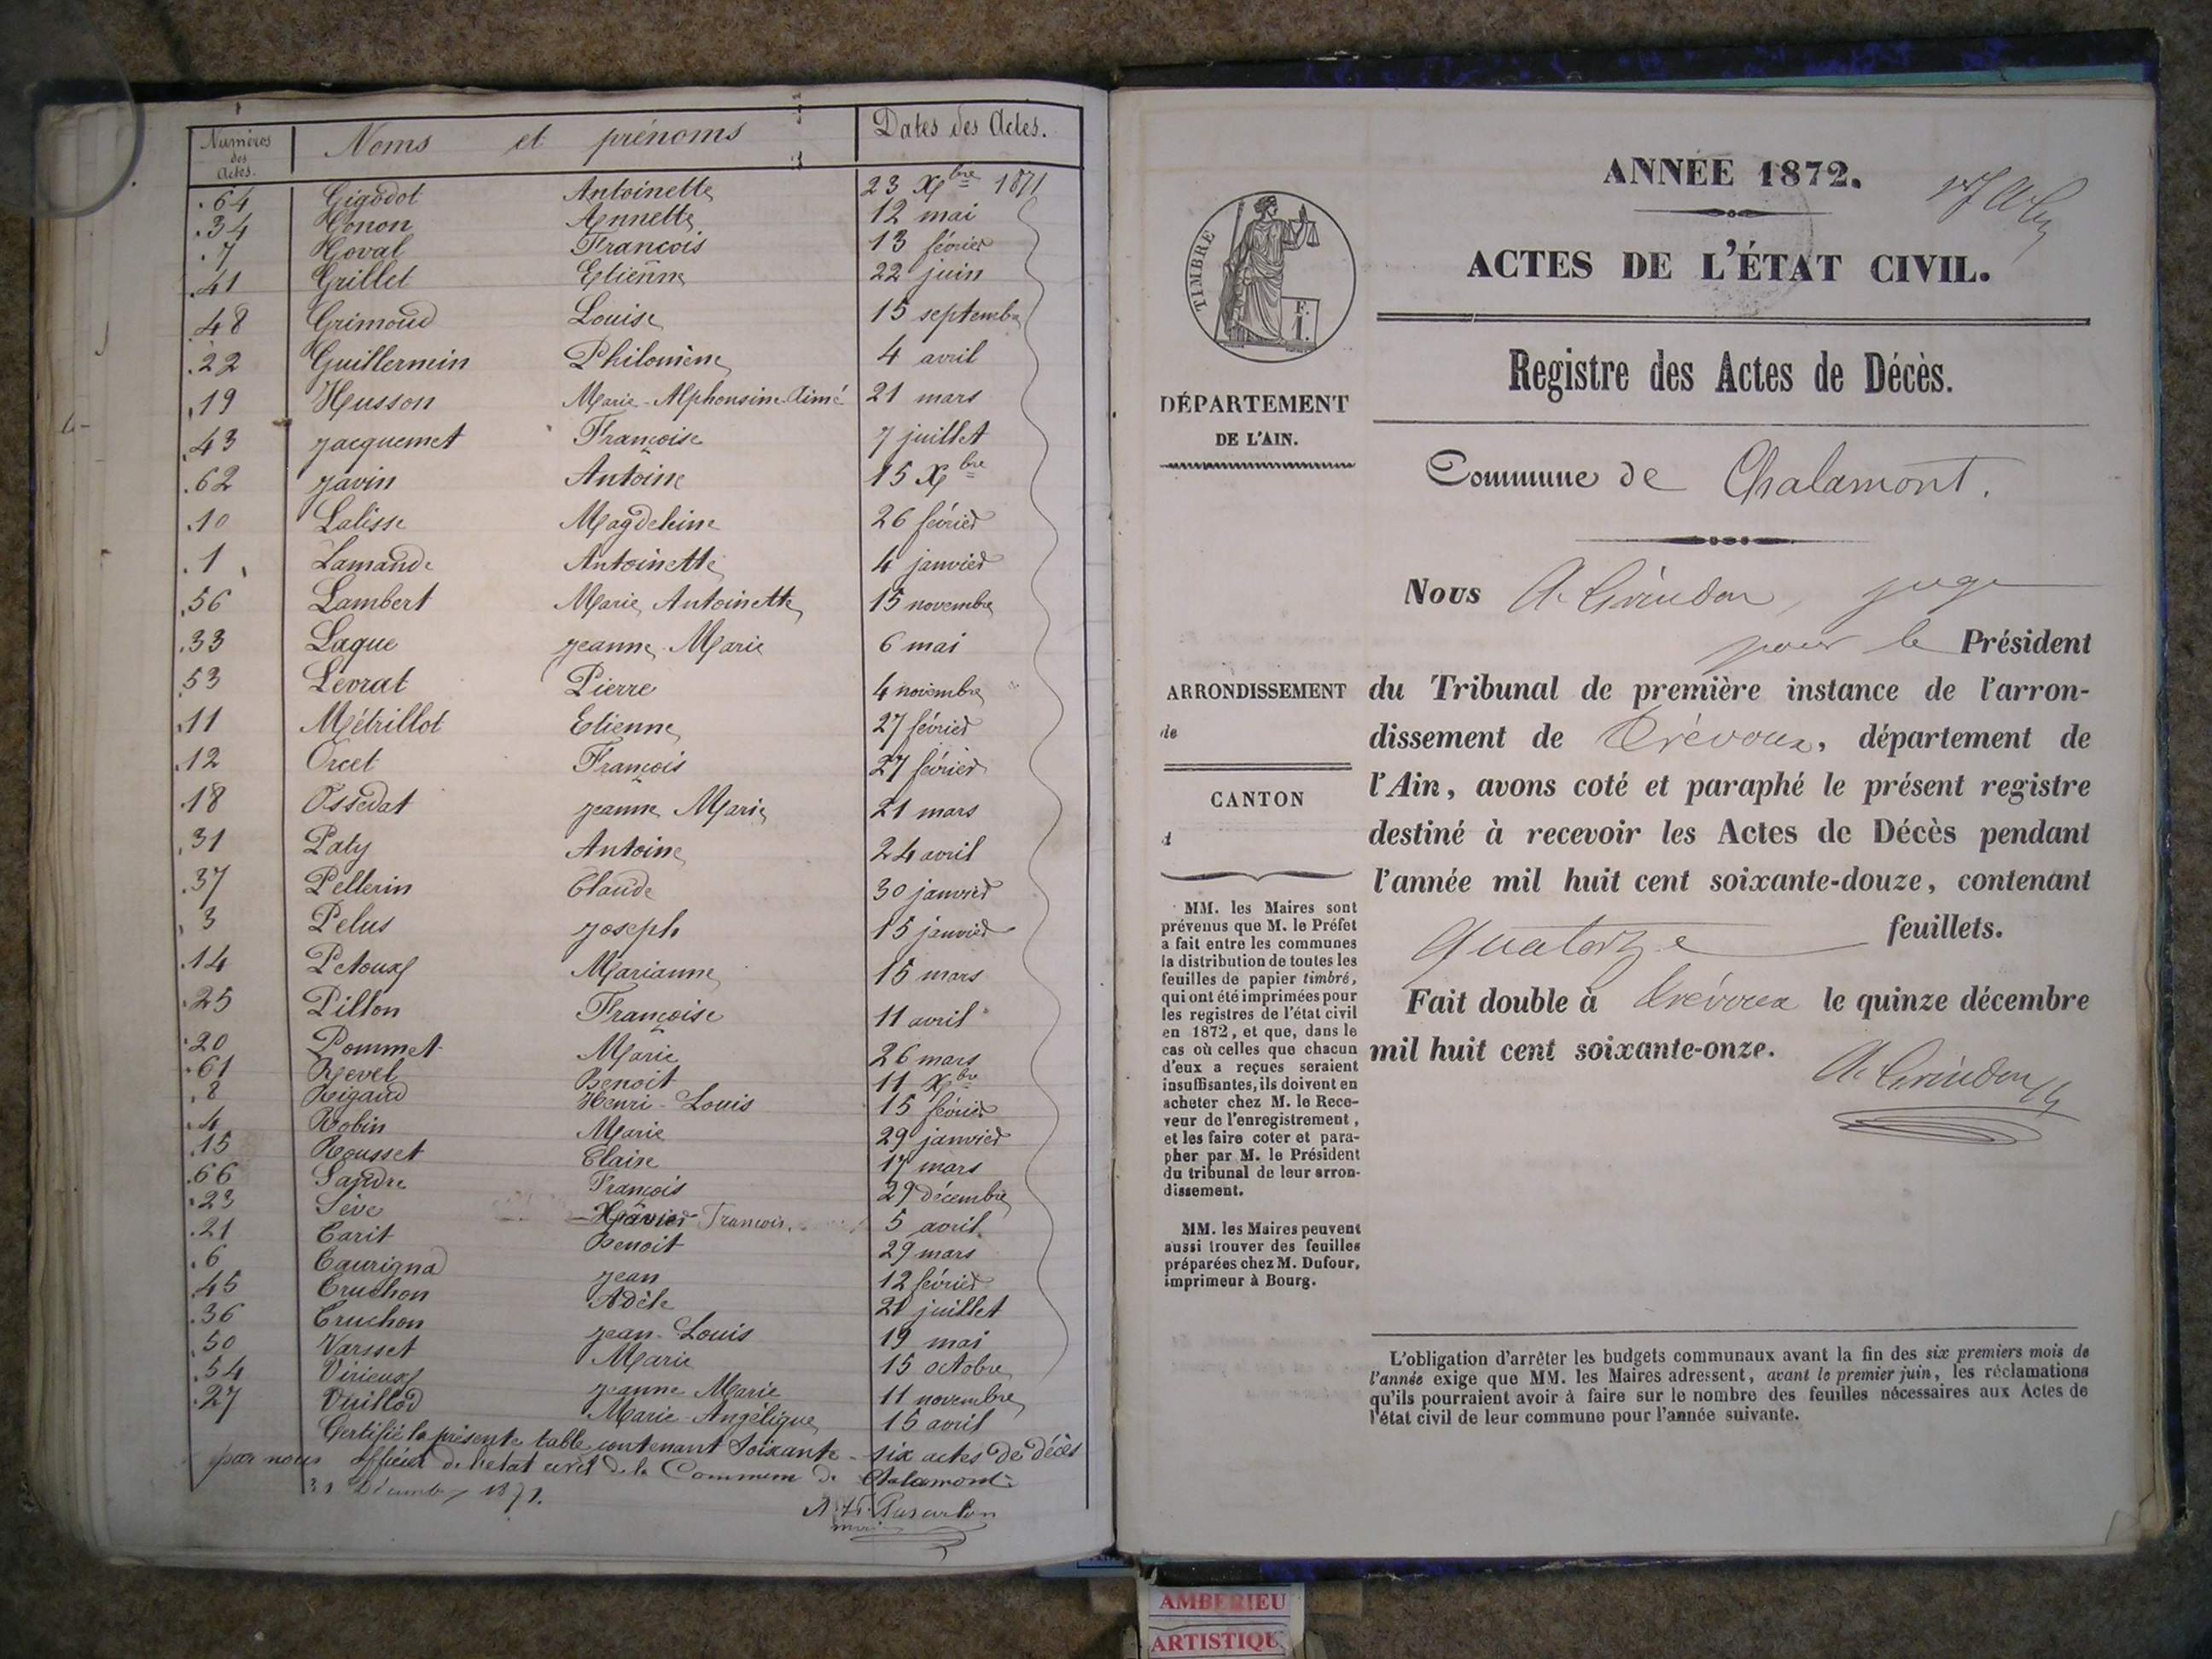 Numéros des Actes. Noms et prénoms Dates des Actes.
64 Gigodot Antoinette 23 Xbre 1871
34 Gonon Annette 12 mai
7 Goval François 13 février
41 Grillet Etienne 22 juin
48 Grimoud Louise 15 septembre
22 Guillermin Philomène 4 avril
19 Husson Marie-Alphonsine Aimé 21 mars
43 Jacquemet Françoise 7 juillet
62 Javin Antoine 15 Xbre
10 Lalisse Magdeleine 26 février
1 Lamande Antoinette 4 janvier
56 Lambert Marie Antoinette 15 novembre
33 Laque Jeanne Marie 6 mai
53 Levrat Pierre 4 novembre
11 Métrillot Etienne 27 février
12 Orcet François 27 février
18 Ossedat Jeanne Marie 21 mars
31 Paty Antoine 24 avril
37 Pellerin Claude 30 janvier
3 Pelus Joseph 15 janvier
14 Petoux Marianne 15 mars
25 Pillon Françoise 11 avril
20 Pommet Marie 26 mars
61 Revel Benoit 11 Xbre
8 Rigaud Henri-Louis 15 février
4 Robin Marie 29 janvier
15 Rousset Claire 17 mars
66 Sandre François 29 décembre
23 Sève Xavier François 5 avril
21 Tarit Benoit 29 mars
6 Taurignad Jean 12 février
45 Truchon Adèle 21 juillet
36 Truchon Jean-Louis 19 mai
50 Varsset Marie 15 octobre
54 Virieux Jeanne Marie 11 novembre
27 Vuillod Marie-Angélique 15 avril
Certifié la présente table contenant soixante-six actes de décès
par nous officier de l'état civil de la Commune de Chalamont
31 Décembre 1871.
ANNÉE 1872.
ACTES DE L'ÉTAT CIVIL.
TIMBRE
F. I.
Registre des Actes de Décès.
DÉPARTEMENT
DE L'AIN.
Commune de Chalamont.
Nous A. Grindon, juge
pour le Président
ARRONDISSEMENT
de
CANTON
du Tribunal de première instance de l'arron-
dissement de Trévoux, département de
l'Ain, avons coté et paraphé le présent registre
destiné à recevoir les Actes de Décès pendant
l'année mil huit cent soixante-douze, contenant
Quatorze feuillets.
Fait double à Trévoux le quinze décembre
mil huit cent soixante-onze.
A. Grindon
MM. les Maires sont
prévenus que M. le Préfet
a fait entre les communes
la distribution de toutes les
feuilles de papier timbré,
qui ont été imprimées pour
les registres de l'état civil
en 1872, et que, dans le
cas où celles que chacun
d'eux a reçues seraient
insuffisantes, ils doivent en
acheter chez M. le Rece-
veur de l'enregistrement,
et les faire coter et para-
pher par M. le Président
du tribunal de leur arron-
dissement.
MM. les Maires peuvent
aussi trouver des feuilles
préparées chez M. Dufour,
imprimeur à Bourg.
L'obligation d'arrêter les budgets communaux avant la fin des six premiers mois de
l'année exige que MM. les Maires adressent, avant le premier juin, les réclamations
qu'ils pourraient avoir à faire sur le nombre des feuilles nécessaires aux Actes de
l'état civil de leur commune pour l'année suivante.
AMBERIEU
ARTISTIQU